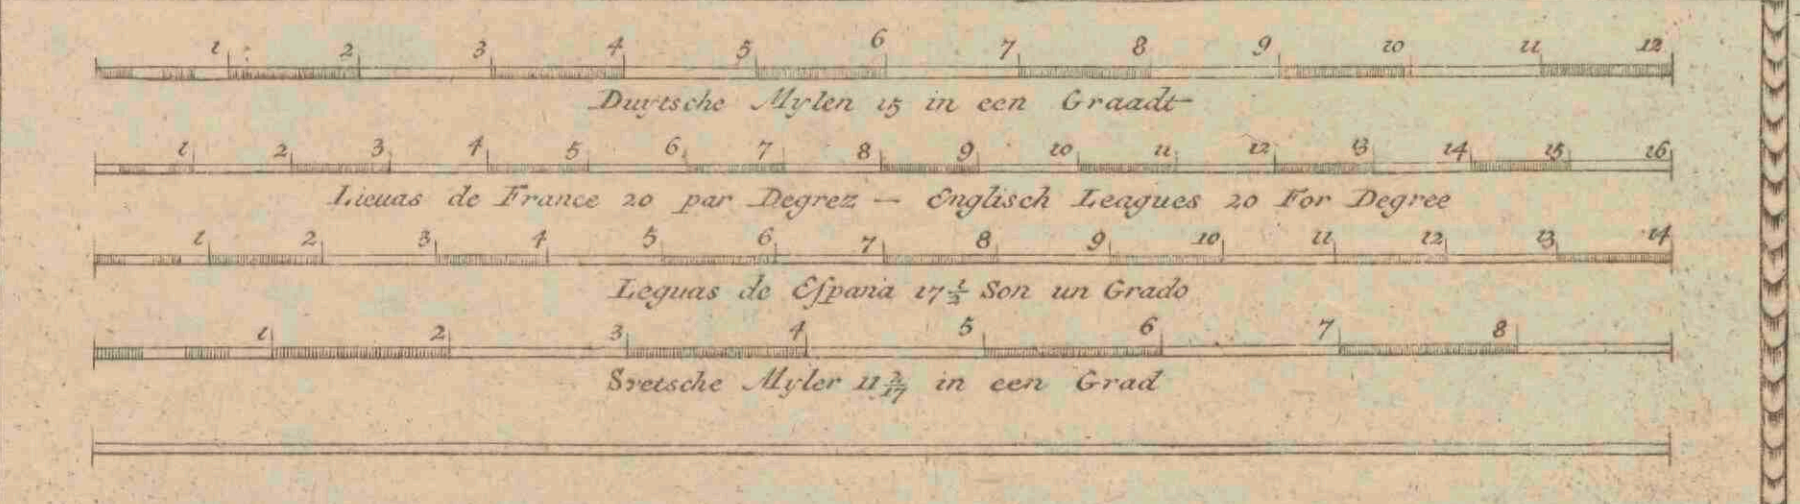 1 2 3 4 5 6 7 8 9 10 11 12
Duytsche Mylen 15 in een Graadt
1 2 3 4 5 6 7 8 9 10 11 12 13 14 15 16
Lieuas de France 20 par Degrez — Englisch Leagues 20 For Degree
1 2 3 4 5 6 7 8 9 10 11 12 13 14
Leguas de Eſpania 17 1/2 Son un Grado
1 2 3 4 5 6 7 8
Svetsche Myler 11 2/17 in een Grad